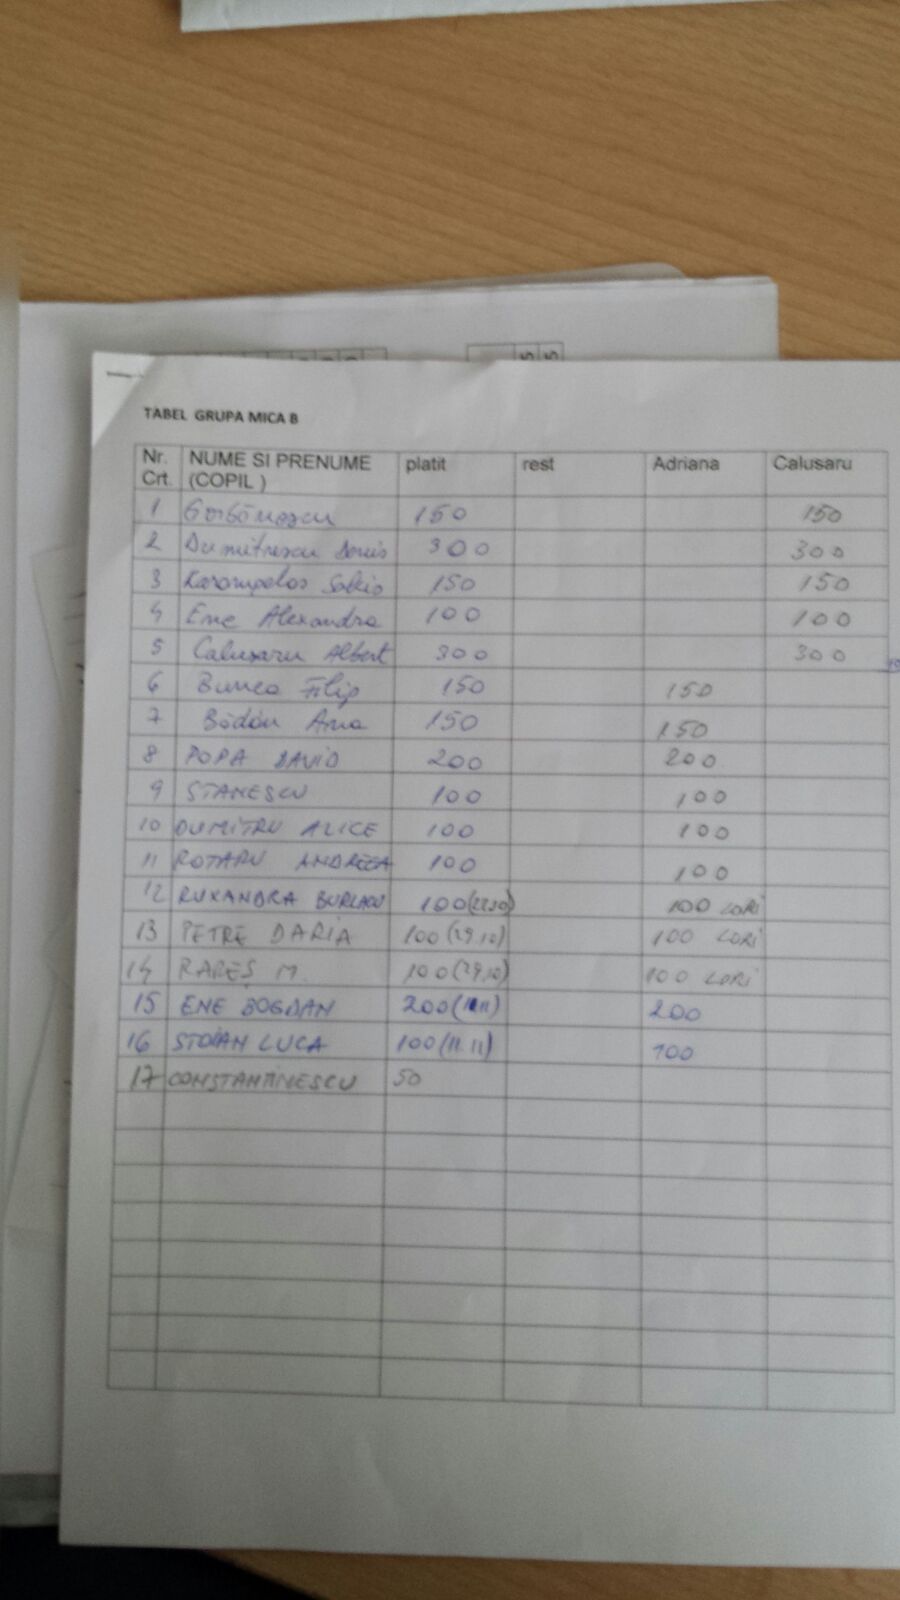 TABEL GRUPA MICA B
Nr. Crt. NUME SI PRENUME (COPIL ) platit rest Adriana Calusaru
1 150 150
2 Dumitrescu Denis 300 300
3 150 150
4 Ene Alexandra 100 100
5 Calusaru Albert 300 300
6 Bunea Filip 150 150
7 Bădău Ana 150 150
8 POPA DAVID 200 200
9 STANESCU 100 100
10 DUMITRU ALICE 100 100
11 ROTARU ANDREEA 100 100
12 RUXANDRA BURLACU 100 100 LORI
13 PETRE DARIA 100 (29.10) 100 LORI
14 RAREȘ M. 100 (29.10) 100 LORI
15 ENE BOGDAN 200 (11.11) 200
16 STOIAN LUCA 100 (11.11) 100
17 CONSTANTINESCU 50